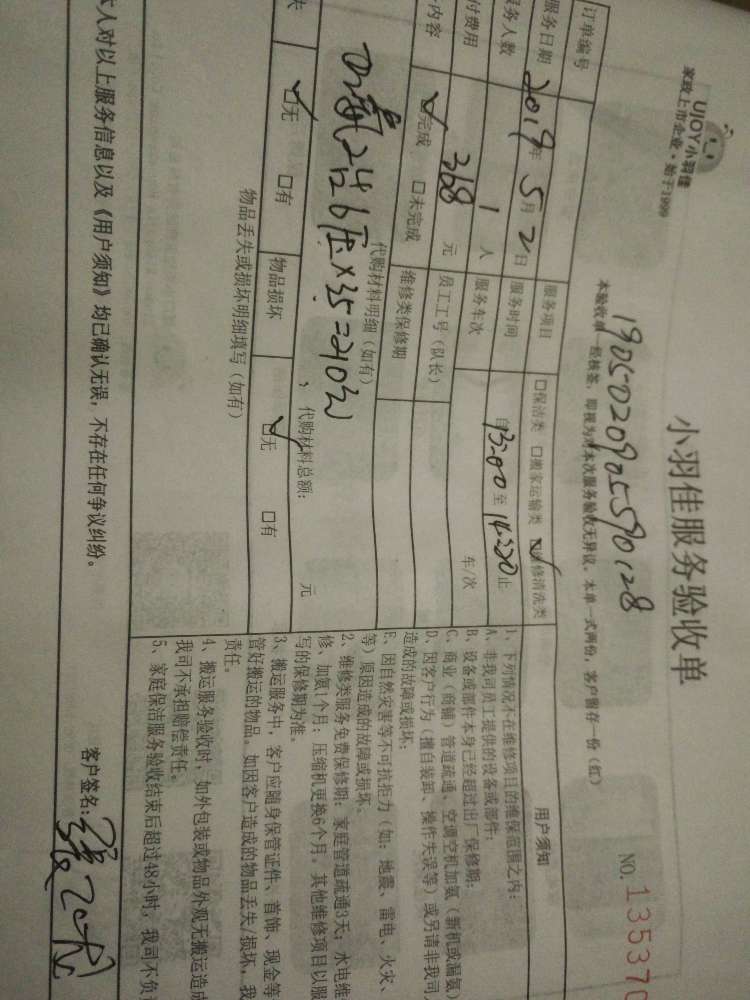 UJOY小羽佳
家政上市企业·始于1999
小羽佳服务验收单
NO. 135370
本验收单一经核签，即视为对本次服务验收无异议。本单一式两份，客户留存一份（红）
订单编号 1905020905590128
服务日期 2019年5月2日 服务项目 □保洁类 □搬家运输类 ☑维修清洗类
服务人数 1人 服务时间 自13:00至14:20止
付费用 368元 服务车次 车/次
内容 ☑完成 □未完成 员工工号（队长）
维修类保修期
代购材料明细（如有）
6压×35=210元
、代购材料总额： 元
失 ☑无 □有 物品损坏 ☑无 □有
物品丢失或损坏明细填写（如有）
用户须知
1、下列情况不在维修项目的维保范围之内：
A、非我司员工提供的设备或部件；
B、设备或部件本身已经超过出厂保修期；
C、商业（商铺）管道疏通、空调空机加氨（新机或漏氨）
D、因客户行为（擅自装卸、操作失误等）或另请非我司
造成的故障或损坏；
E、因自然灾害等不可抗拒力（如：地震、雷电、火灾、
等）原因造成的故障或损坏。
2、维修类服务免费保修期：家庭管道疏通3天；水电维
修、加氨1个月；压缩机更换6个月。其他维修项目以服
写的保修期为准。
3、搬运服务中，客户应随身保管证件、首饰、现金等
管好搬运的物品。如因客户造成的物品丢失/损坏，我
责任。
4、搬运服务验收时，如外包装或物品外观无搬运造成
我司不承担赔偿责任。
5、家庭保洁服务验收结束后超过48小时，我司不负
本人对以上服务信息以及《用户须知》均已确认无误，不存在任何争议纠纷。
客户签名：